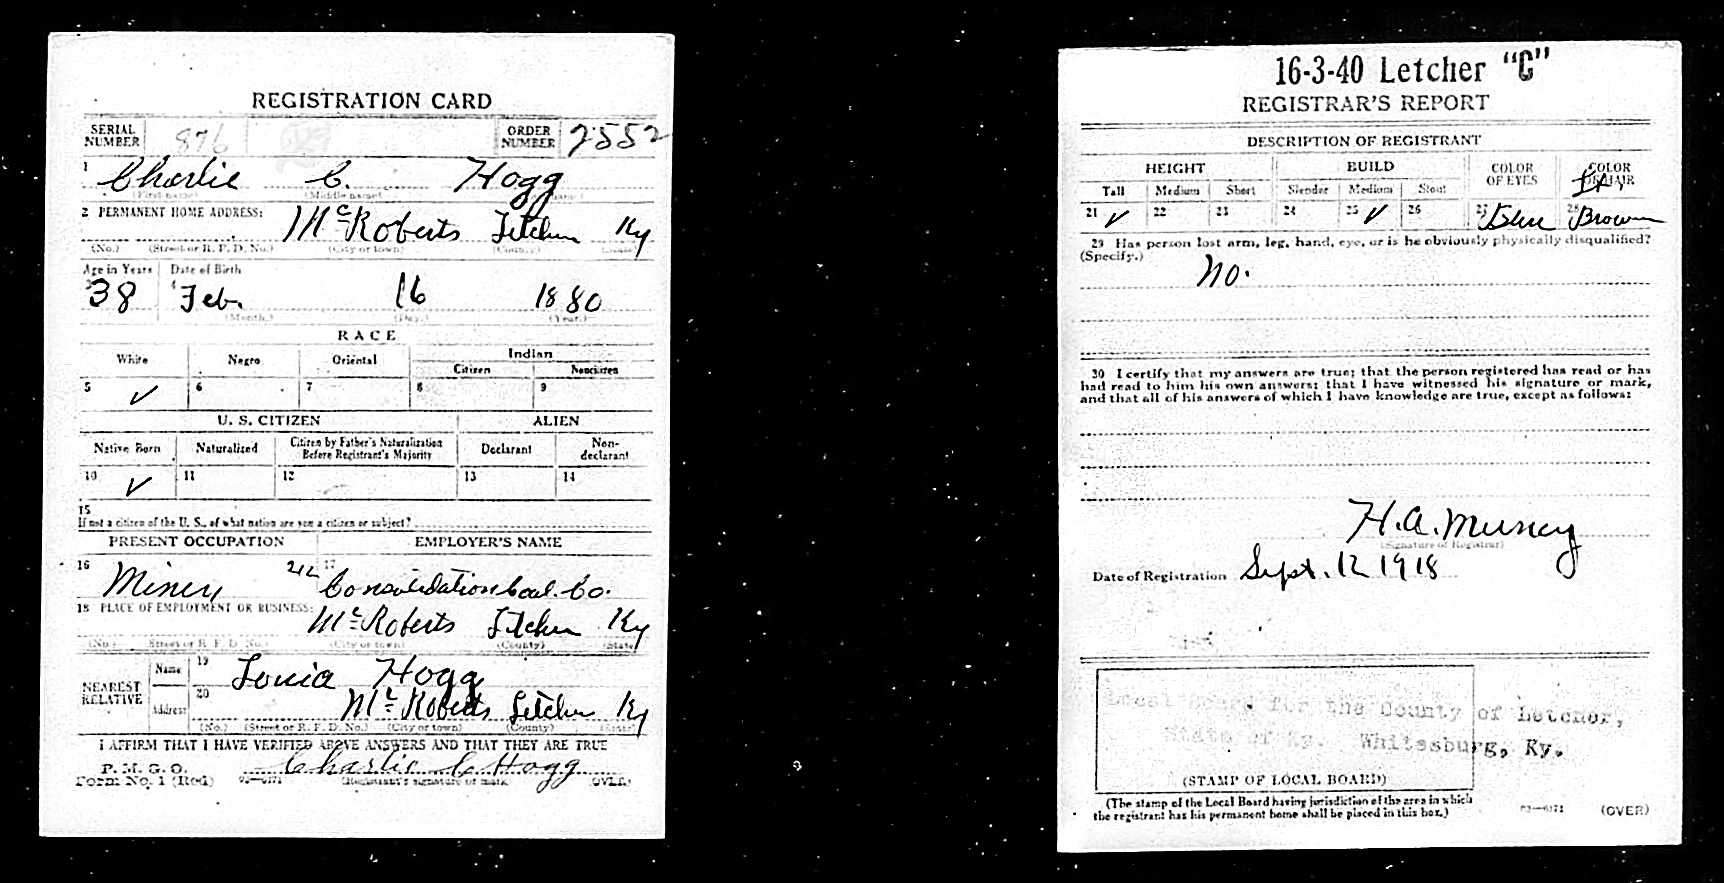 REGISTRATION CARD
SERIAL NUMBER 876 ORDER NUMBER 2552
1 Charlie C. Hogg
(First name) (Middle name) (Last name)
2 PERMANENT HOME ADDRESS:
McRoberts Letcher Ky
(No.) (Street or R. F. D. No.) (City or town) (County) (State)
Age in Years Date of Birth
38 4 Feb. 16 1880
(Month.) (Day.) (Year.)
RACE
White Negro Oriental Indian
Citizen Noncitizen
5 ✓ 6 7 8 9
U. S. CITIZEN ALIEN
Native Born Naturalized Citizen by Father's Naturalization Before Registrant's Majority Declarant Non-declarant
10 ✓ 11 12 13 14
15
If not a citizen of the U. S., of what nation are you a citizen or subject?
PRESENT OCCUPATION EMPLOYER'S NAME
16 Miner 212 17 Consolidation Coal Co.
18 PLACE OF EMPLOYMENT OR BUSINESS:
McRoberts Letcher Ky
(No.) (Street or R. F. D. No.) (City or town) (County) (State)
NEAREST RELATIVE Name 19 Hogg
Address 20 McRoberts Letcher Ky
(No.) (Street or R. F. D. No.) (City or town) (County) (State)
I AFFIRM THAT I HAVE VERIFIED ABOVE ANSWERS AND THAT THEY ARE TRUE
P. M. G. O.
Form No. 1 (Red) Charlie C Hogg
(Registrant's signature or mark) (OVER)
16-3-40 Letcher "C"
REGISTRAR'S REPORT
DESCRIPTION OF REGISTRANT
HEIGHT BUILD COLOR OF EYES COLOR OF HAIR
Tall Medium Short Slender Medium Stout
21 ✓ 22 23 24 25 ✓ 26 27 Blue 28 Brown
29 Has person lost arm, leg, hand, eye, or is he obviously physically disqualified?
(Specify.)
No.
30 I certify that my answers are true; that the person registered has read or has
had read to him his own answers; that I have witnessed his signature or mark,
and that all of his answers of which I have knowledge are true, except as follows:
H. A. Muncy
(Signature of Registrar)
Date of Registration Sept. 12 1918
Local Board for the County of Letcher,
State of Ky. Whitesburg, Ky.
(STAMP OF LOCAL BOARD)
(The stamp of the Local Board having jurisdiction of the area in which
the registrant has his permanent home shall be placed in this box.)
03—6171 (OVER)